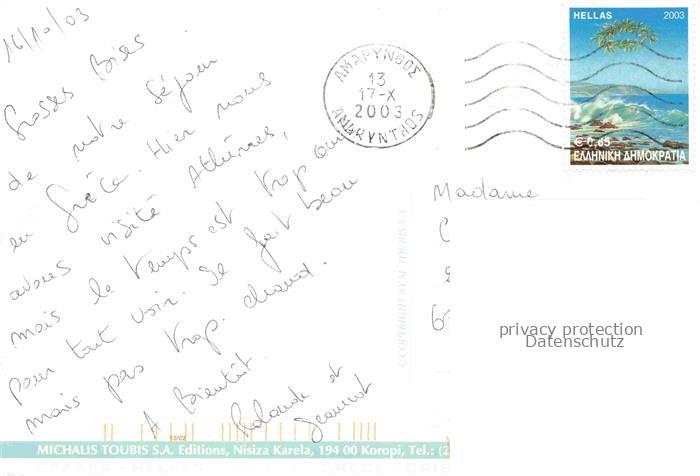 16/10/03
Grosses Bises
de notre séjour
en Grèce. Hier nous
avons visité Athènes,
mais le temps est trop
pour tout voir. Il fait beau
mais pas trop chaud.
A Bientôt.
Rolande et
Jeannot
ΑΜΑΡΥΝΘΟΣ
13
17-X
2003
AMARYNTHOS
HELLAS 2003
€ 0.65
ΕΛΛΗΝΙΚΗ ΔΗΜΟΚΡΑΤΙΑ
Madame
privacy protection
Datenschutz
© COPYRIGHT BY M. TOUBIS S.A.
12/02
MICHALIS TOUBIS S.A. Editions, Nisiza Karela, 194 00 Koropi, Tel.: (2